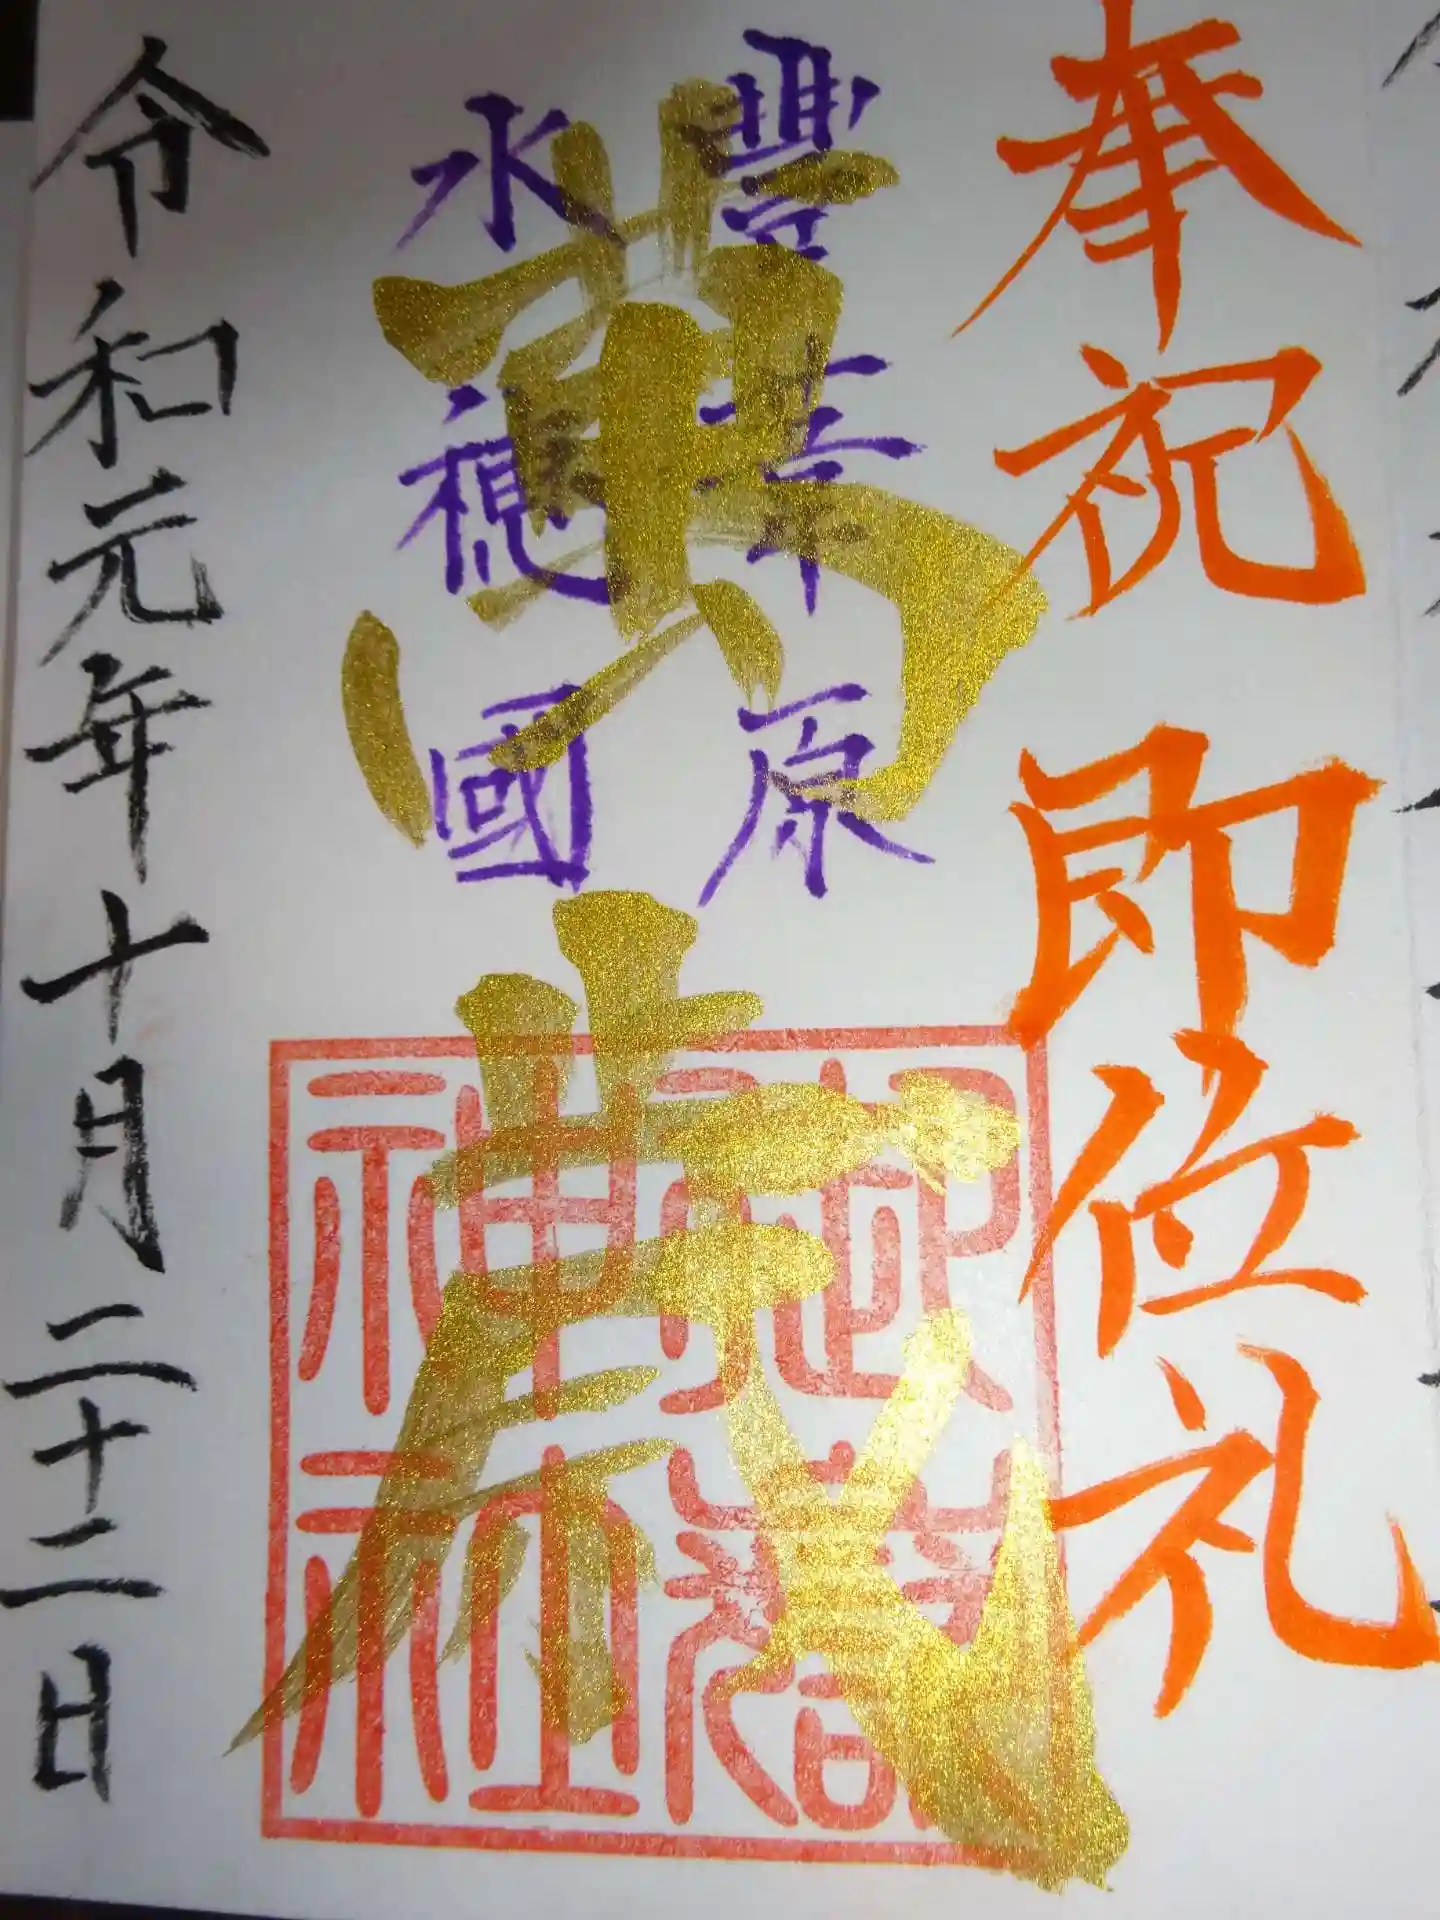 奉祝 即位礼
豐葦原
水穂國
萬歳
神社
令和元年十月二十二日